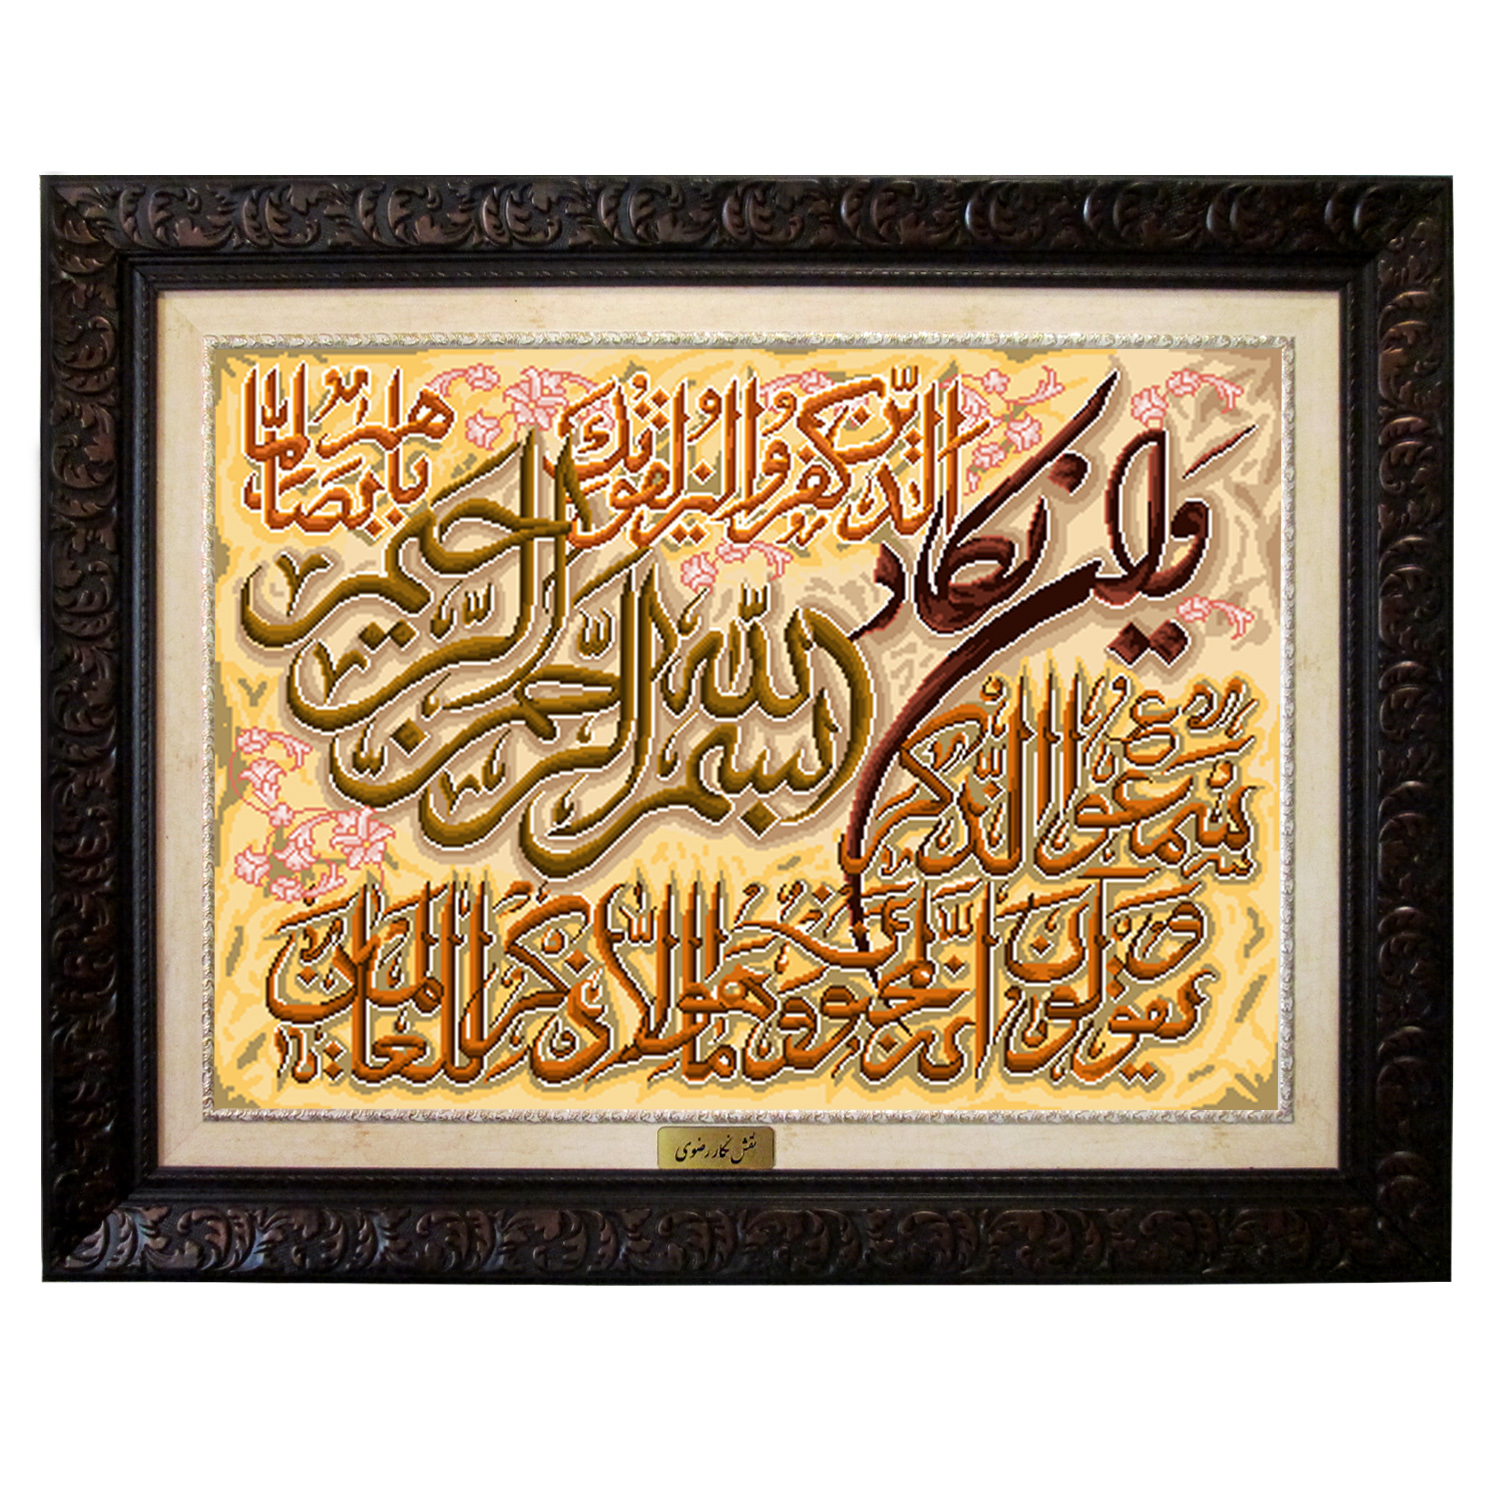 بسم الله الرحمن الرحیم
وان یکاد
الذین کفروا لیزلقونک
بابصارهم لما
سمعوا الذکر
و یقولون انه لمجنون وما هو الا ذکر للعالمین
نقش نگار رضوی